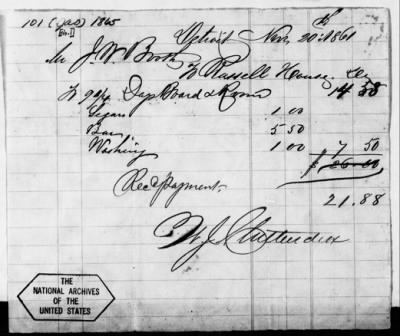 101 (JAG) 1865
Ex. 1
Detroit Nov 20th 1861
Mr J. W. Booth
To Russell House Dr
To 9 2/4 Days Board & Room 14 38
Segars 1 00
Bar 5 50
Washing 1 00 7 50
Rec Payment
21.88
W. J. Chittenden
THE
NATIONAL ARCHIVES
OF THE
UNITED STATES